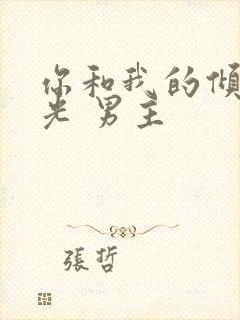 你和我的傾
光 男主
張哲